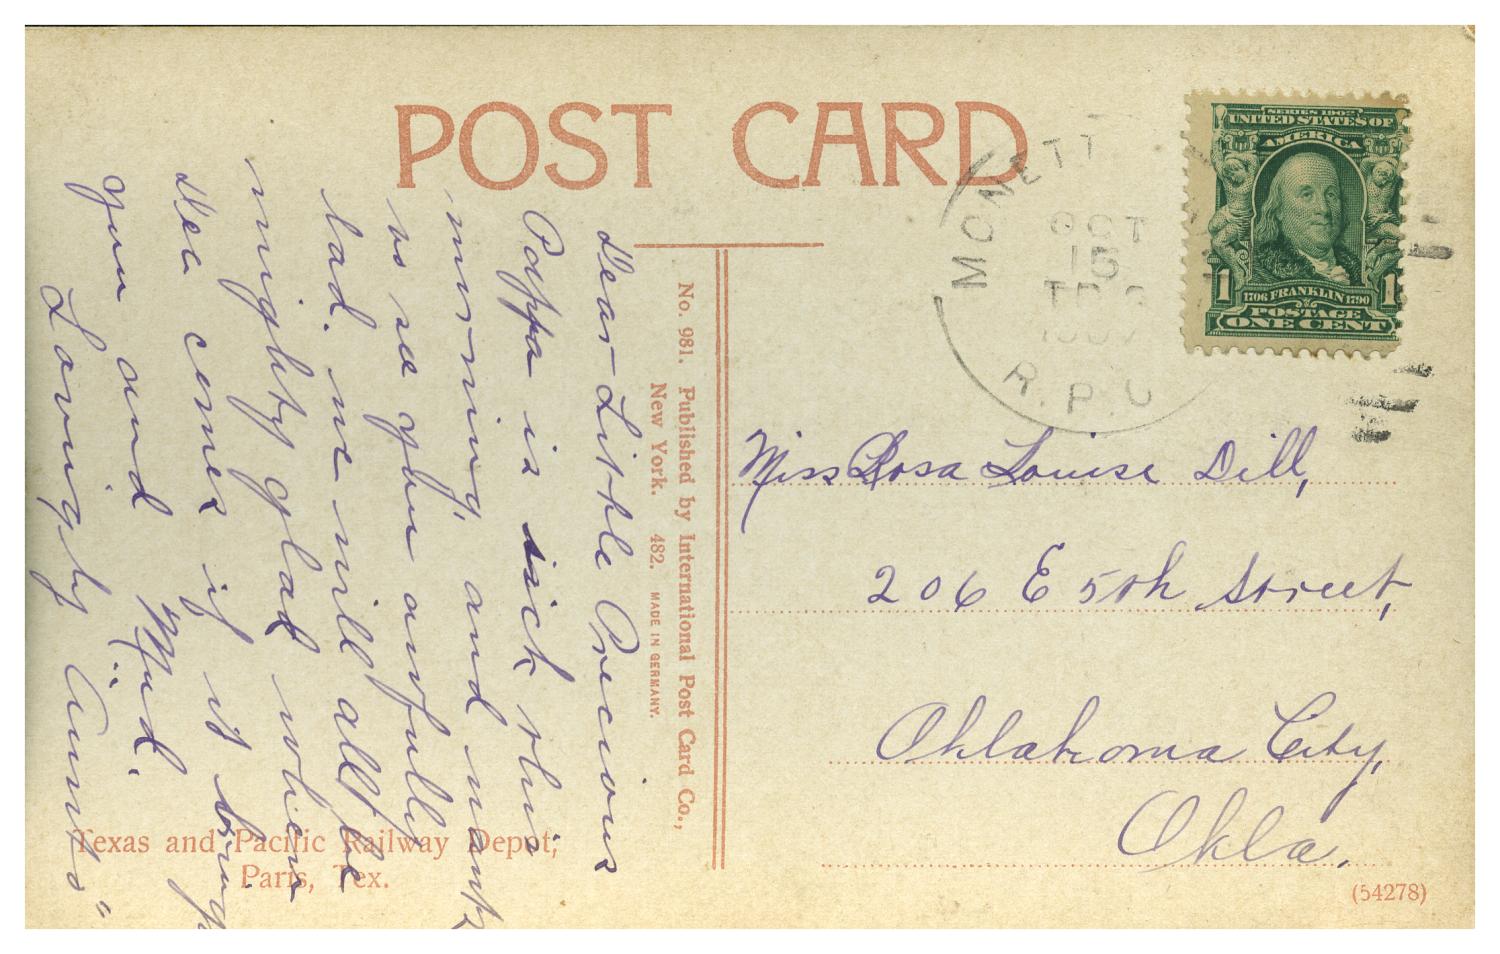 POST CARD
SERIES 1902
UNITED STATES OF
AMERICA
1706 FRANKLIN 1790
POSTAGE
1 ONE CENT 1
MONETT
OCT
15
R.P.O
No. 981. Published by International Post Card Co.,
New York. 482. MADE IN GERMANY.
Dear Little Precious
Pappa is sick this
morning, and wants
to see you awfully
bad. we will all be
mighty glad when
Dec comes if it bring
you and "Mud."
Lovingly Aunts"
Miss Rosa Louise Dill,
206 E 5th Street,
Oklahoma City,
Okla.
Texas and Pacific Railway Depot,
Paris, Tex.
(54278)